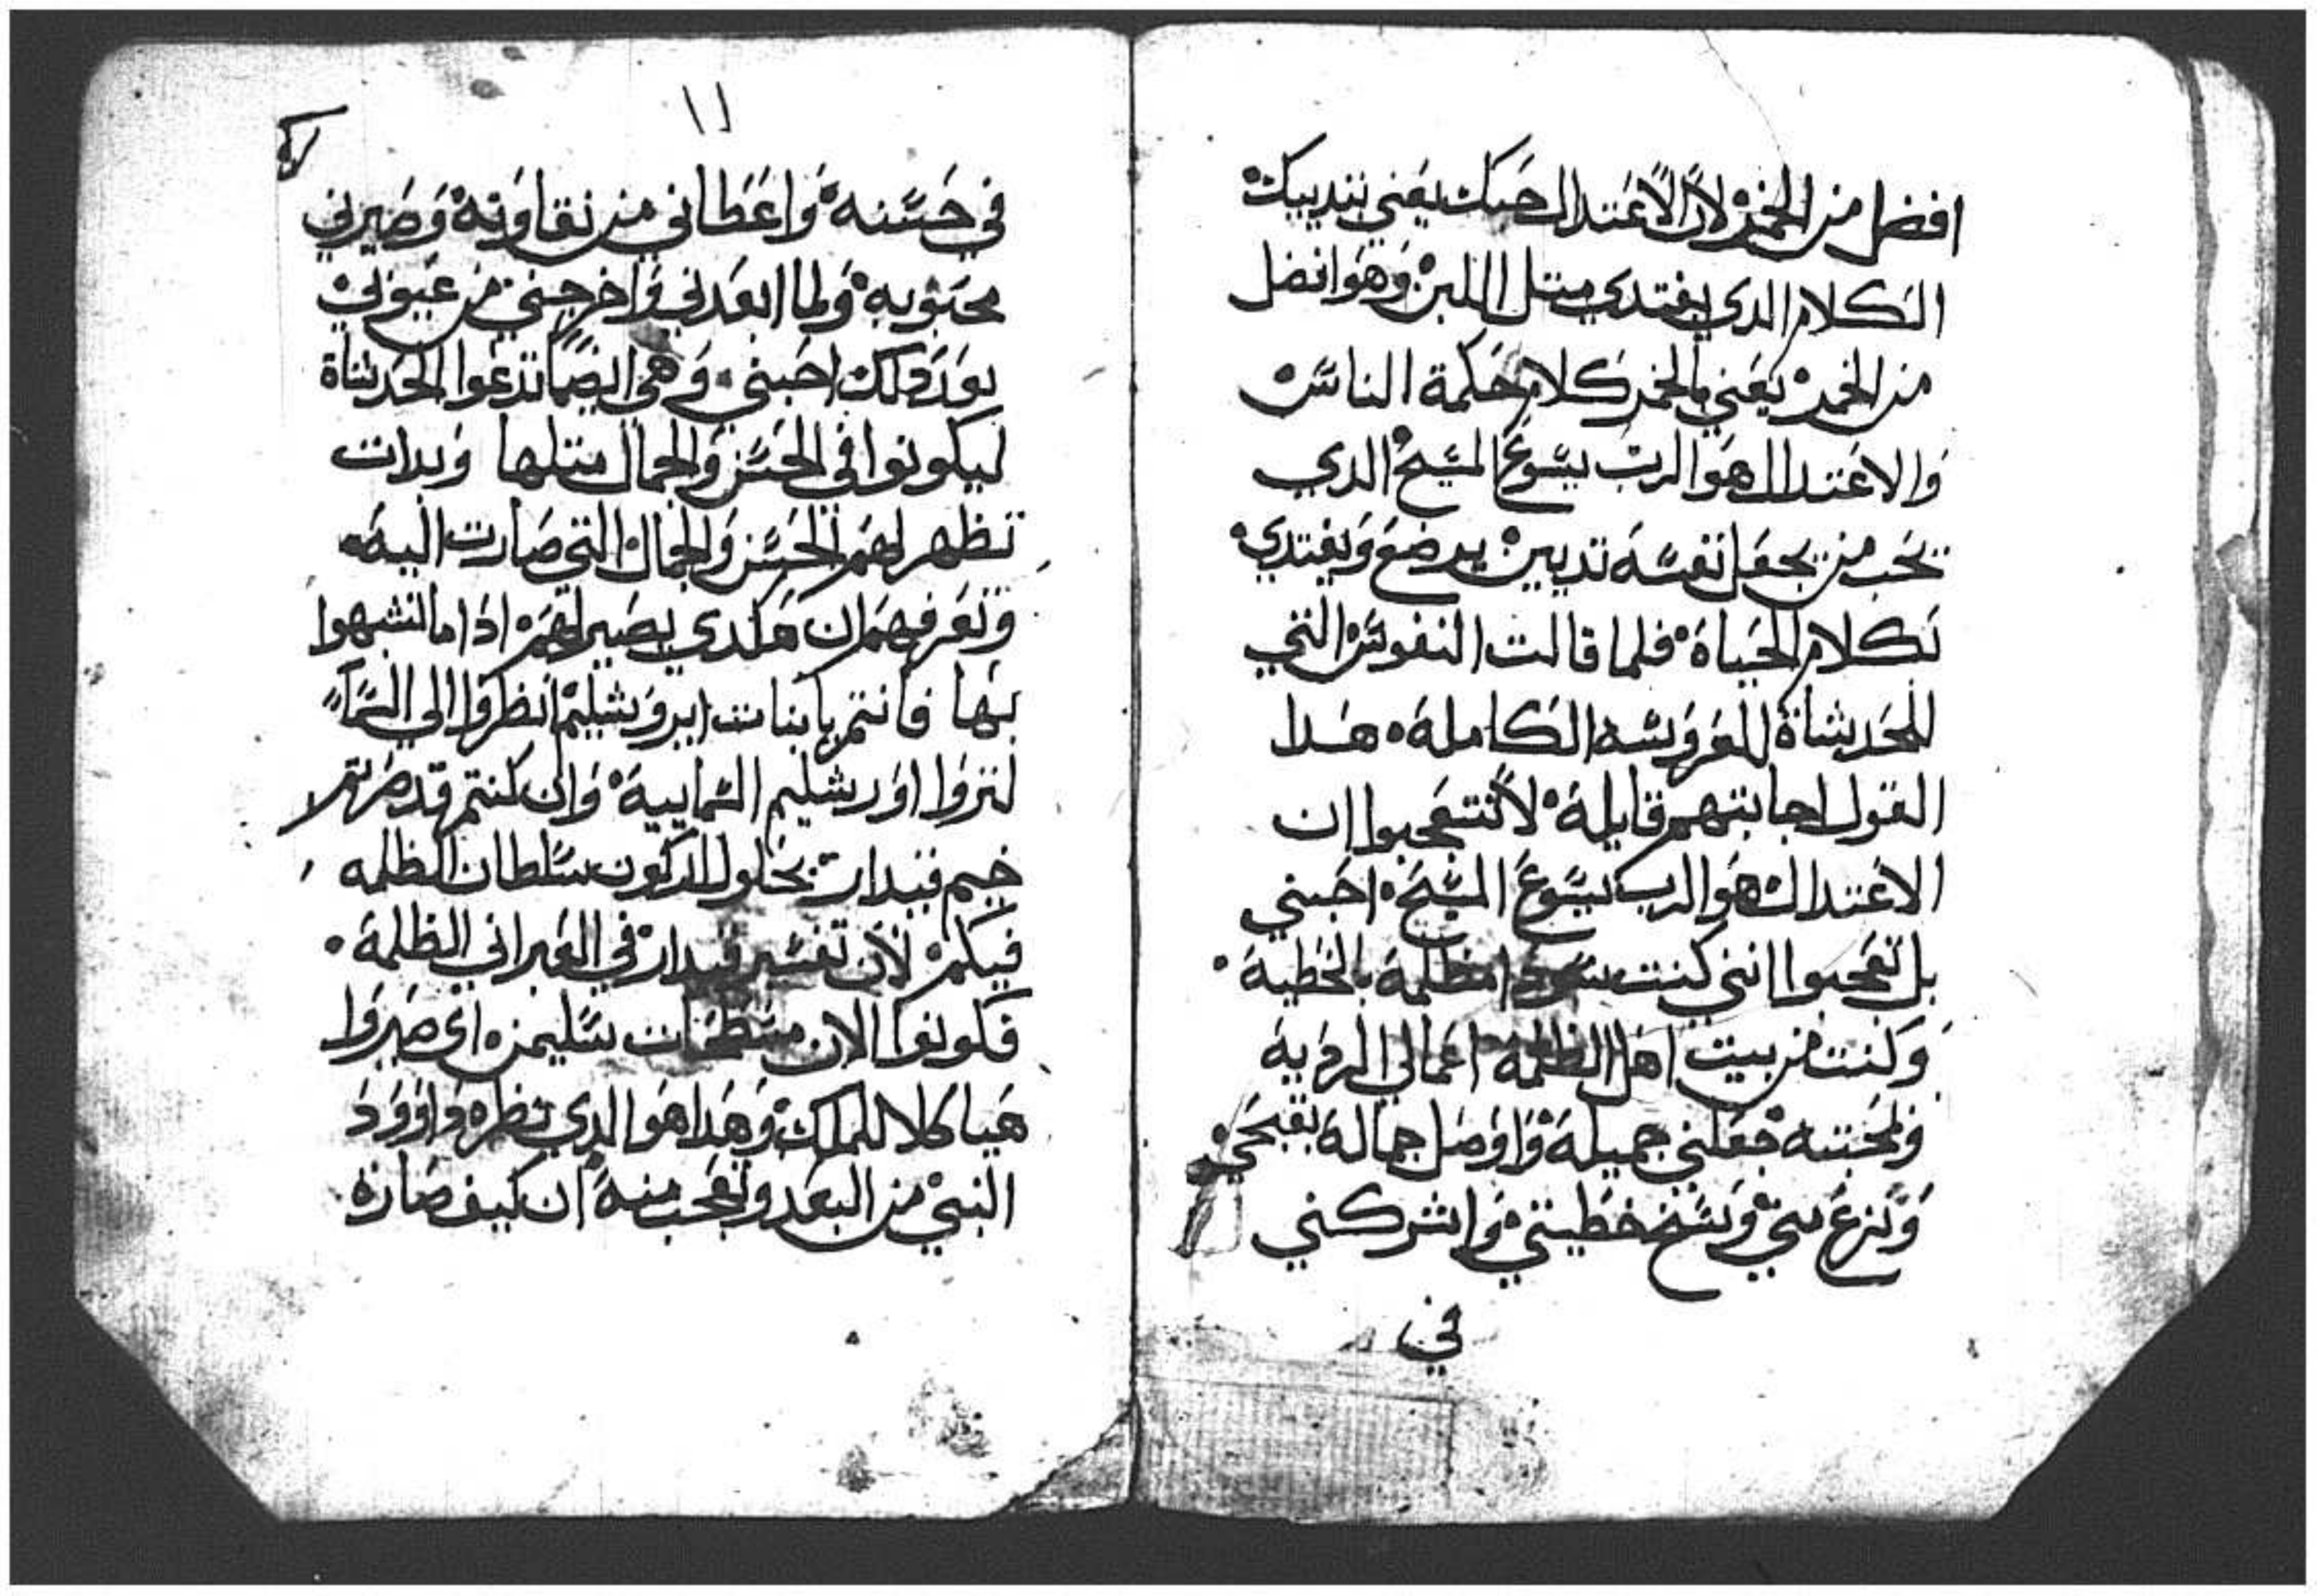 افضل من الخمر لان الاعتدال حبك يعني بتدييك
الكلام الدي يغتدي متل اللبن وهو افضل
من الخمر يعني بالخمر كلام حكمة الناس
والاعتدال هو الرب يسوع المسيح الدي
يحب من يجعل نفسه تديين يرضع ويغتدي
بكلام الحياة فلما قالت النفوس التي
للحديثاة للعروسه الكاملة هدا
القول اجابتهم قايلة لا تتعجبوا ان
الاعتدال هو الرب يسوع المسيح احبني
بل تعجبوا انني كنت سودا مظلمة بالخطية
وكنت من بيت اهل الظلمة اعمالي الردية
ولمحبته جعلني جميلة واوصل جماله بقبحي
ونزع عني وسخ خطيتي واشركني
في
١١
في حسنه واعطاني من نقاوته وصيرني
محبوبه ولما ابعدني واخرجني من عيوبي
بعد دلك احبني وهي ايضا تدعوا الحديثاة
ليكونوا في الحسن والجمال متلها وبدات
تظهر لهم الحسن والجمال التي صارت اليه
وتعرفهم ان هكدي يصير لهم اذا ما اتشبهوا
بها فانتم يا بنات ايروشليم انظروا الي السما
لتروا اورشليم السماييه وان كنتم قد صرتم
خيم قيدار بحلول اركون سلطان الظلمه
فيكم لان تفسير قيدار في العبراني الظلمة
فكونوا الان مسطحات سليمن اي صيروا
هياكلا للملك وهدا هو الدي نظره داوود
النبي من البعد وتعجب منه ان كيف صارة